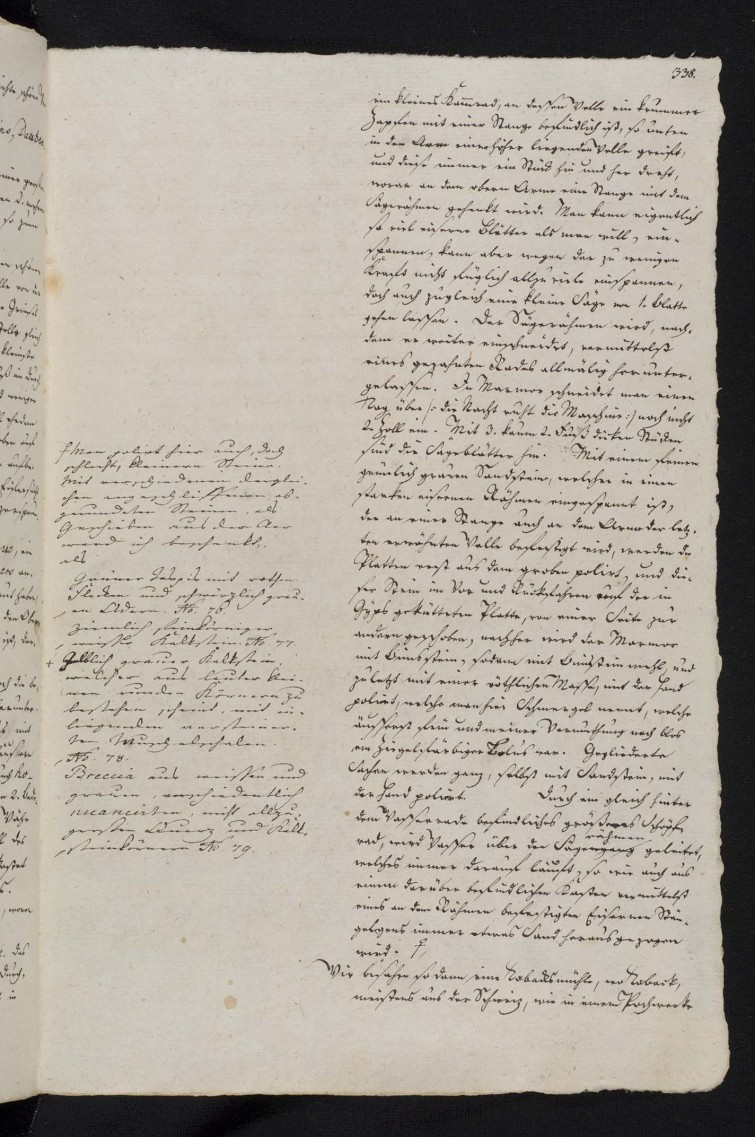 338.
ein kleines Kammrad, an dessen Welle ein krummer
Zapfen mit einer Stange befindlich ist, so unten
in den Arm einer höher liegenden Welle greift,
und diese immer ein Stück hin und her dreht,
woran an dem obern Arme eine Stange mit dem
Sägerähmen gehenkt wird. Man kann eigentlich
so viel eiserne Blätter als man will, ein-
spannen, kann aber wegen der zu wenigen
Kraft nicht füglich allzu viele einspannen,
doch auch zugleich eine kleine Säge von 1. Blatte
gehen lassen. Der Sägerähmen wird, nach-
dem er weiter einschneidet, vermittelst
eines gezahnten Rades allmälig herunter-
gelassen. In Marmor schneidet man einen
Tag über /: die Nacht ruht die Maschine :/ noch nicht
2. Zoll ein. Mit 3. kaum 2. Fuß dicken Stücken
sind die Sägeblätter hin. Mit einem kleinen
grünlich grauen Sandstein, welcher in einen
starken eisernen Rähmen eingespannt ist,
der an einer Stange auch an dem Arme der letz-
ten erwähnten Welle befestigt wird, werden die
Platten erst aus dem groben polirt, und die-
ser Stein im Vor und Rückfahren auf der in
Gyps gekütteten Platte, von einer Seite zur
andern geschoben, nachher wird der Marmor
mit Bimsstein, sodann mit Bimsteinmehl, und
zuletzt mit einer röthlichen Masse, mit der Hand
polirt, welche man hier Schmergel nennt, welche
äusserst fein und meiner Vermuthung nach blos
ein ziegelfärbiger Bolus war. Gegliederte
Sachen werden ganz, selbst mit Sandstein, mit
der Hand polirt. Durch ein gleich hinter
dem Wasserrade befindliches größeres Schöpf-
rad, wird Wasser über den Säge rähmen geleitet,
welches immer darauf läuft, so wie auch aus
einem darüber befindlichen Kasten vermittelst
eines an dem Rähmen befestigten Eisernen Stän-
gelgens immer etwas Sand herausgezogen
wird. †
Wir besahen sodann eine Tobacksmühle, wo Toback,
meistens aus der Schweiz, wie in einem Pochwerke
† Man polirt hier auch, doch
schlecht, kleinere Steine.
Mit verschiedenen derglei-
chen angeschliffenen, ab-
gerundeten Steinen, als
Geschieben aus der Aar
werde ich beschenkt,
als
Grüner Jaspis mit rothen
Flecken und schwärzlich grau-
en Adern. No. 76.
Ziemlich feinkörniger
weisser Kalkstein. No. 77.
+ Gelblich grauer Kalkstein,
welcher aus lauter klei-
nen runden Körnern zu
bestehen scheint, mit in-
liegenden versteiner-
ten Muschelschalen.
No. 78.
Breccia aus weissen und
grauen, verschiedentlich
nuancirten, nicht allzu-
grossen Quarz und Kalk-
steinkörnern No. 79.